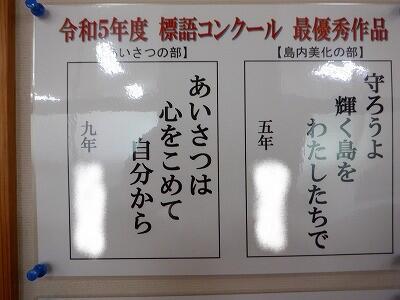 令和5年度 標語コンクール 最優秀作品
【島内美化の部】
守ろうよ
輝く島を
わたしたちで
五年
あいさつの部】
あいさつは
心をこめて
自分から
九年